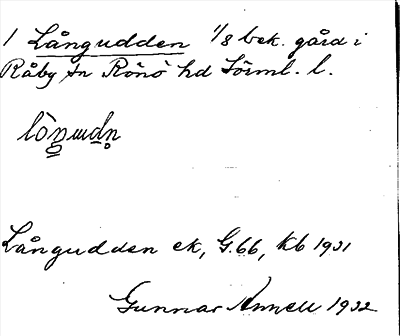 1 Långudden 1/8 bek. gård i
Råby sn Rönö hd Sörml. l.
Långudden ek, G.66, kb 1931
Gunnar Annell 1932